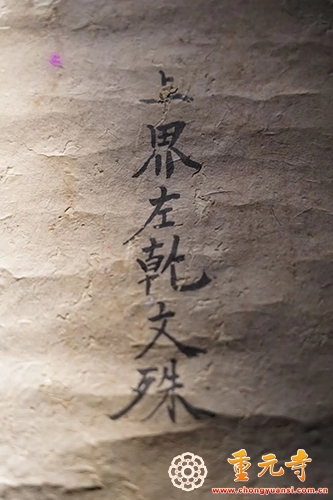 上界左乾文殊
重元寺
www.chongyuansi.com.cn